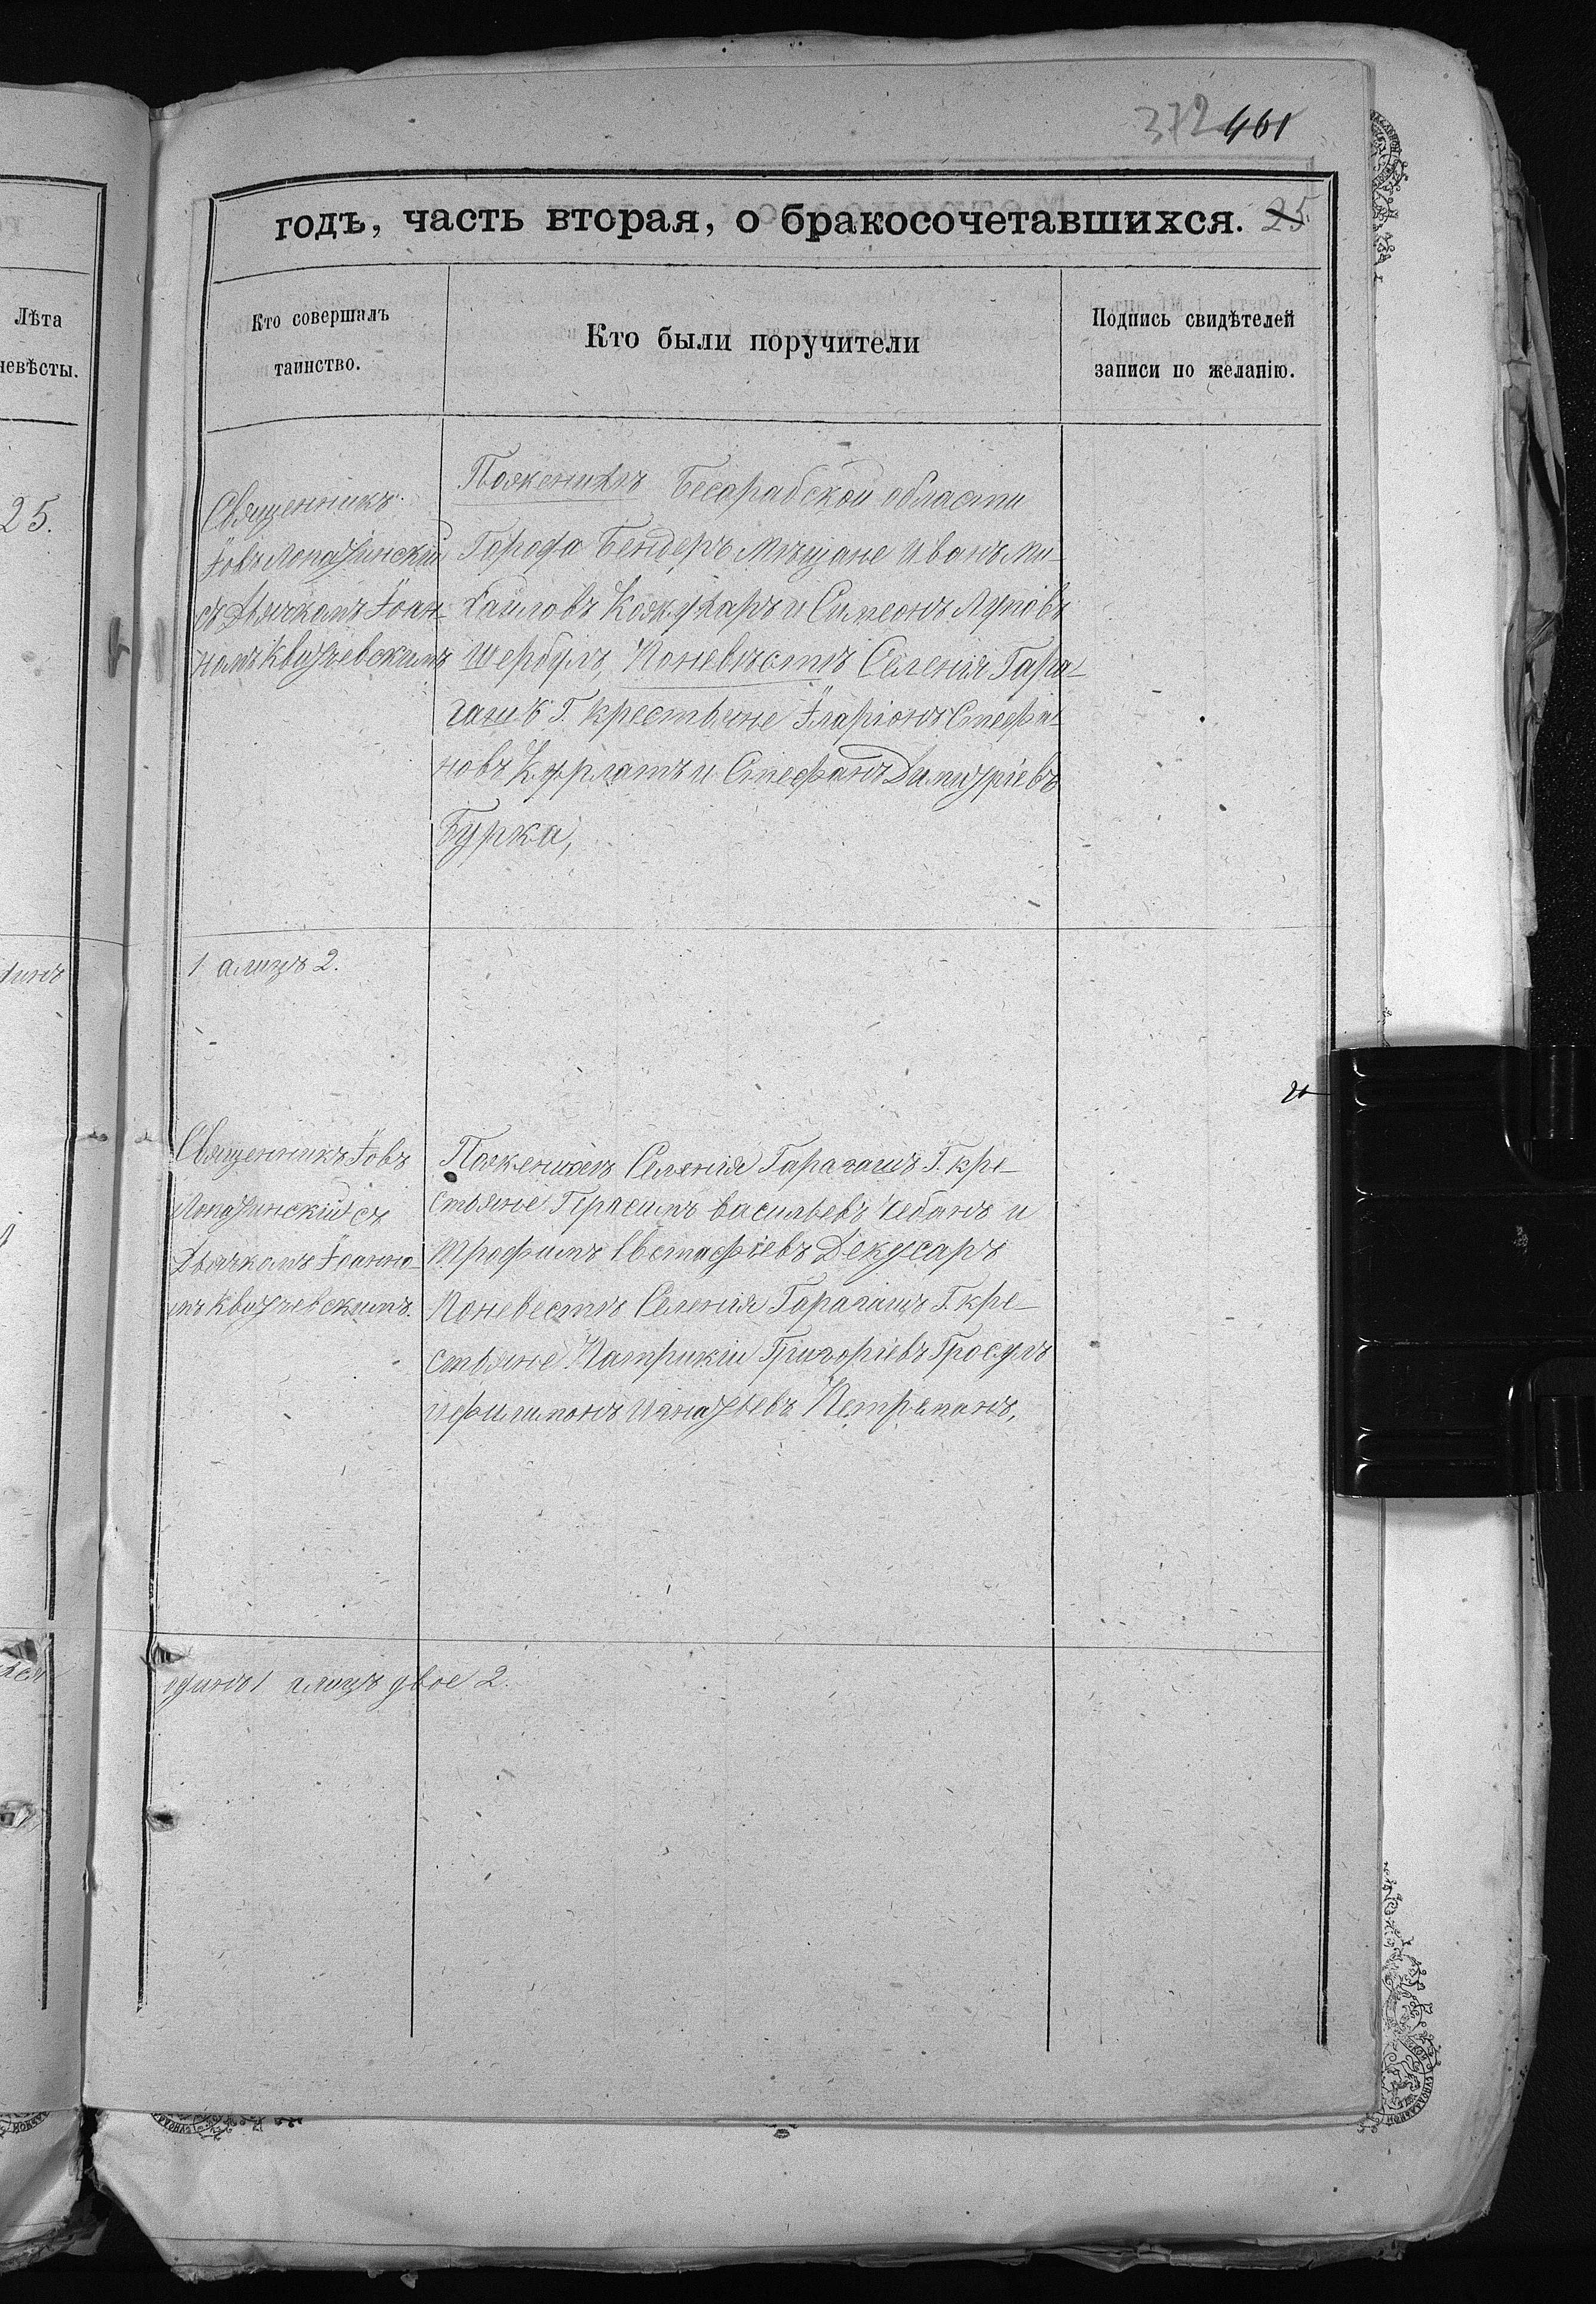 372 461
годъ, часть вторая, о бракосочетавшихся. 25
Лѣта
невѣсты.
Кто совершалъ
таинство.
Кто были поручители
Подпись свидѣтелей
записи по желанію.
25.
Священникъ
Іовъ Лопатинскій
съ Дьячкомъ Іоан-
номъ Квитчевскимъ
Поженихѣ Бесарабской области
Города Бендеръ Мѣщане Иванъ Ми-
хаиловъ Кожухаръ и Симеонъ Луповъ
Шербулъ, Поневѣстѣ Селенія Гара-
гашъ Г. крестьяне Іларіонъ Стефа-
новъ Курлатъ и Стефанъ Димитріевъ
Бурка,
1 алицъ 2.
Священникъ Іовъ
Лопатинскій съ
Дьячкомъ Іоанно-
мъ Квитчевскимъ.
Пожениоѣ Селенія Гарагашъ Г. кре-
стьяне Герасимъ Васильевъ Чебанъ и
Трофимъ Евстафіевъ Декусаръ
Поневестѣ Селенія Гарагашъ Г. кре-
стьяне Патрикіи Григоріевъ Гросулъ
ифилимонъ Петриманъ,
одинъ 1 алицъ двое 2.